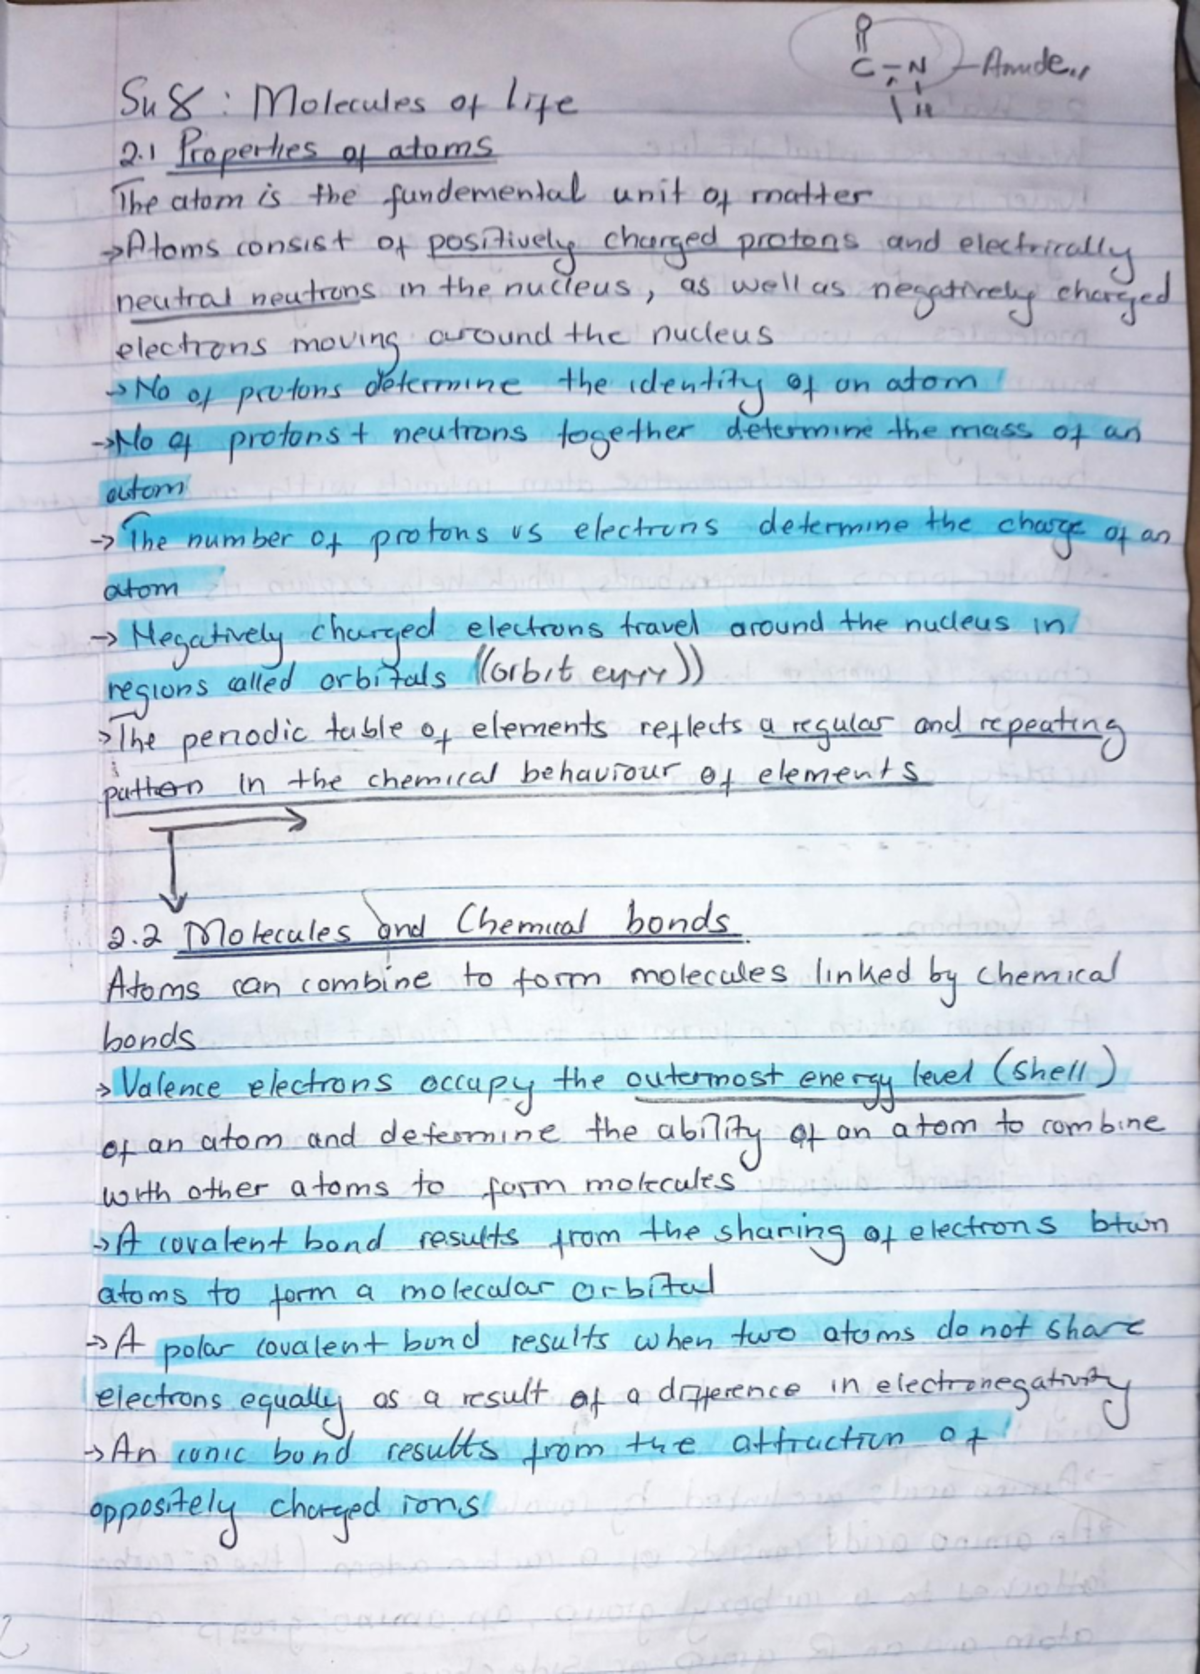 O
C - N - Amide,,
H
Su 8 : Molecules of life
2.1 Properties of atoms
The atom is the fundemental unit of matter
→Atoms consist of positively charged protons and electrically
neutral neutrons in the nucleus, as well as negatively charged
electrons moving around the nucleus
→No of protons determine the identity of an atom
→No of protons + neutrons together determine the mass of an
atom
→ The number of protons vs electrons determine the charge of an
atom
→ Negatively charged electrons travel around the nucleus in
regions called orbitals ((orbit eyyy))
→The periodic table of elements reflects a regular and repeating
pattern in the chemical behaviour of elements
2.2 Molecules and Chemical bonds
Atoms can combine to form molecules linked by chemical
bonds
→ Valence electrons occupy the outermost energy level (shell)
of an atom and determine the ability of an atom to combine
with other atoms to form molecules
→A covalent bond results from the sharing of electrons btwn
atoms to form a molecular orbital
→A polar covalent bond results when two atoms do not share
electrons equally as a result of a difference in electronegativity
→An ionic bond results from the attraction of
oppositely charged ions